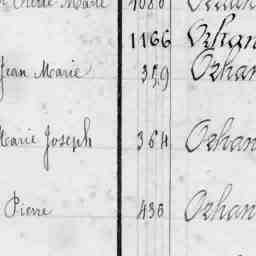 Marie 1086
1166 Ozhan
Jean Marie 359 Ozhan
Marie Joseph 364 Ozhan
Pierre 436 Ozhan